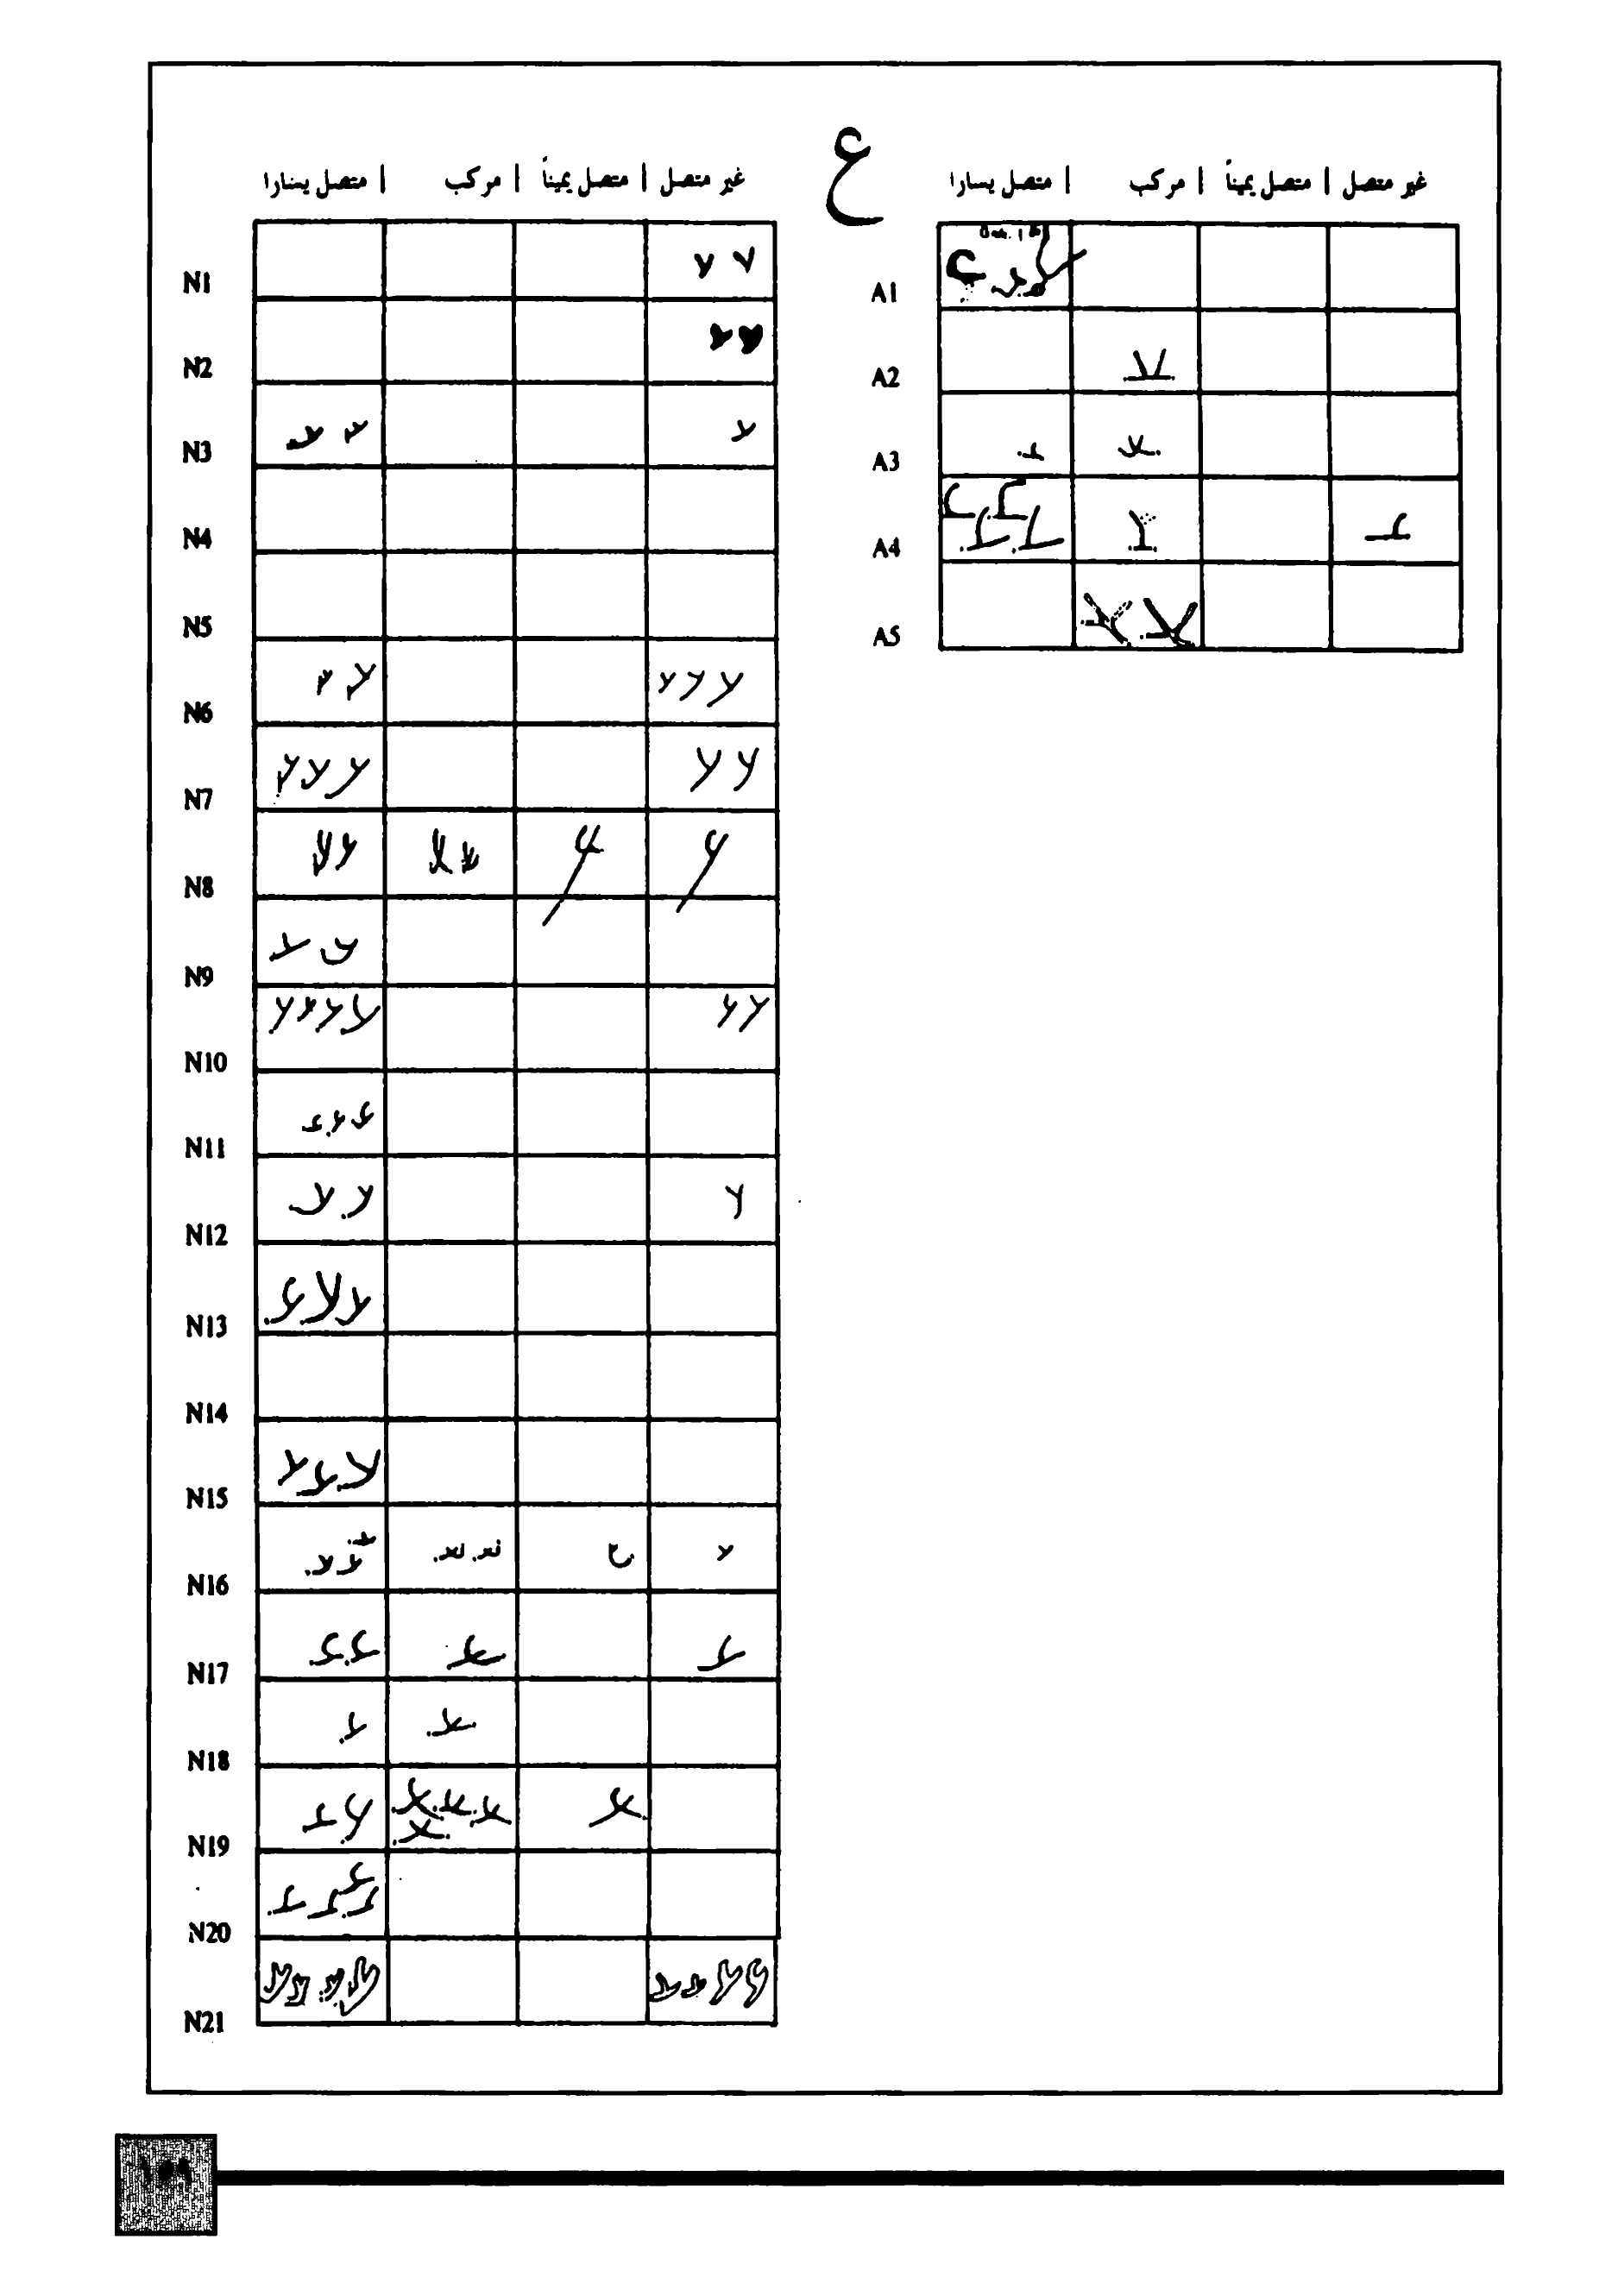 ع
غير متصل | متصل يميناً | مركب | متصل يسارا |
A1
A2
A3
A4
A5
غير متصل | متصل يميناً | مركب | متصل يسارا |
N1
N2
N3
N4
N5
N6
N7
N8
N9
N10
N11
N12
N13
N14
N15
N16
N17
N18
N19
N20
N21
١٥٩